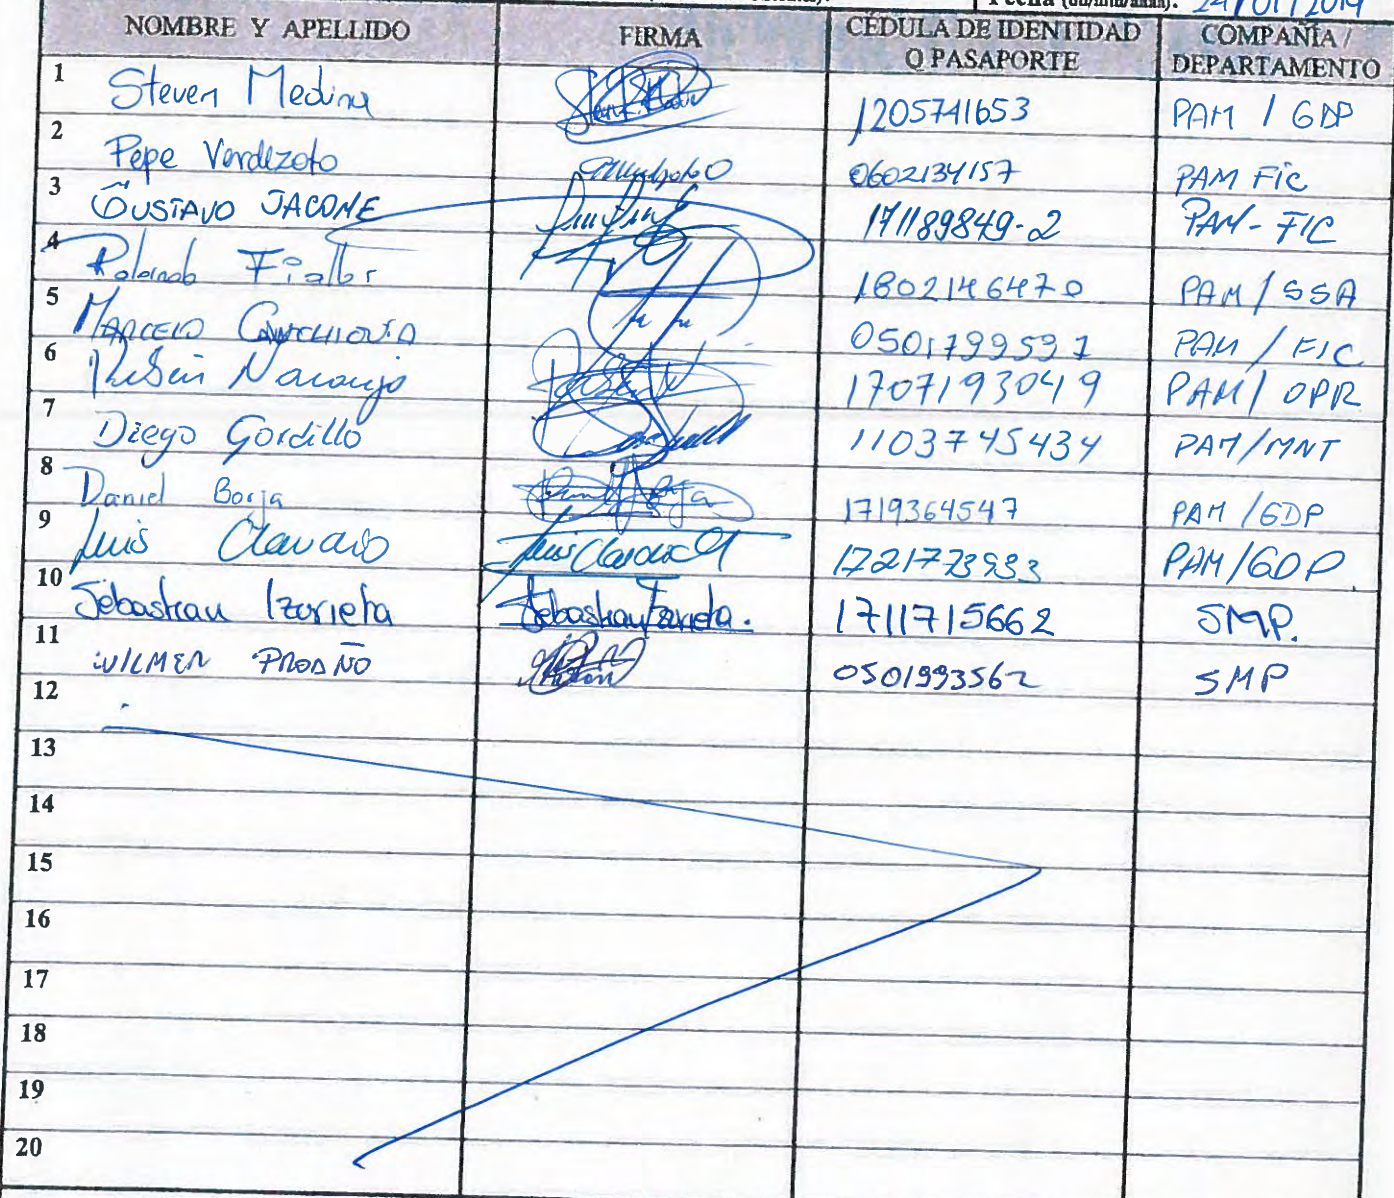 Fecha (dd/mm/aaaa): 24/01/2019
NOMBRE Y APELLIDO FIRMA CÉDULA DE IDENTIDAD O PASAPORTE COMPAÑIA / DEPARTAMENTO
1 Steven Medina 1205741653 PAM / GDP
2 Pepe Verdezoto 0602134157 PAM FIC
3 GUSTAVO JACOME 171189849-2 PAM-FIC
4 Rolando Fiallos 1802146470 PAM / SSA
5 MARCELO 0501799597 PAM / FIC
6 Rubén Naranjo 1707193049 PAM / OPR
7 Diego Gordillo 1103745434 PAM/MNT
8 Daniel Borja 1719364547 PAM /GDP
9 Luis Clavijo 1721773933 PAM/GDP
10 Sebastian Izurieta Sebastian Izurieta. 1711715662 SMP.
11 WILMER PROAÑO 0501993562 SMP
12
13
14
15
16
17
18
19
20